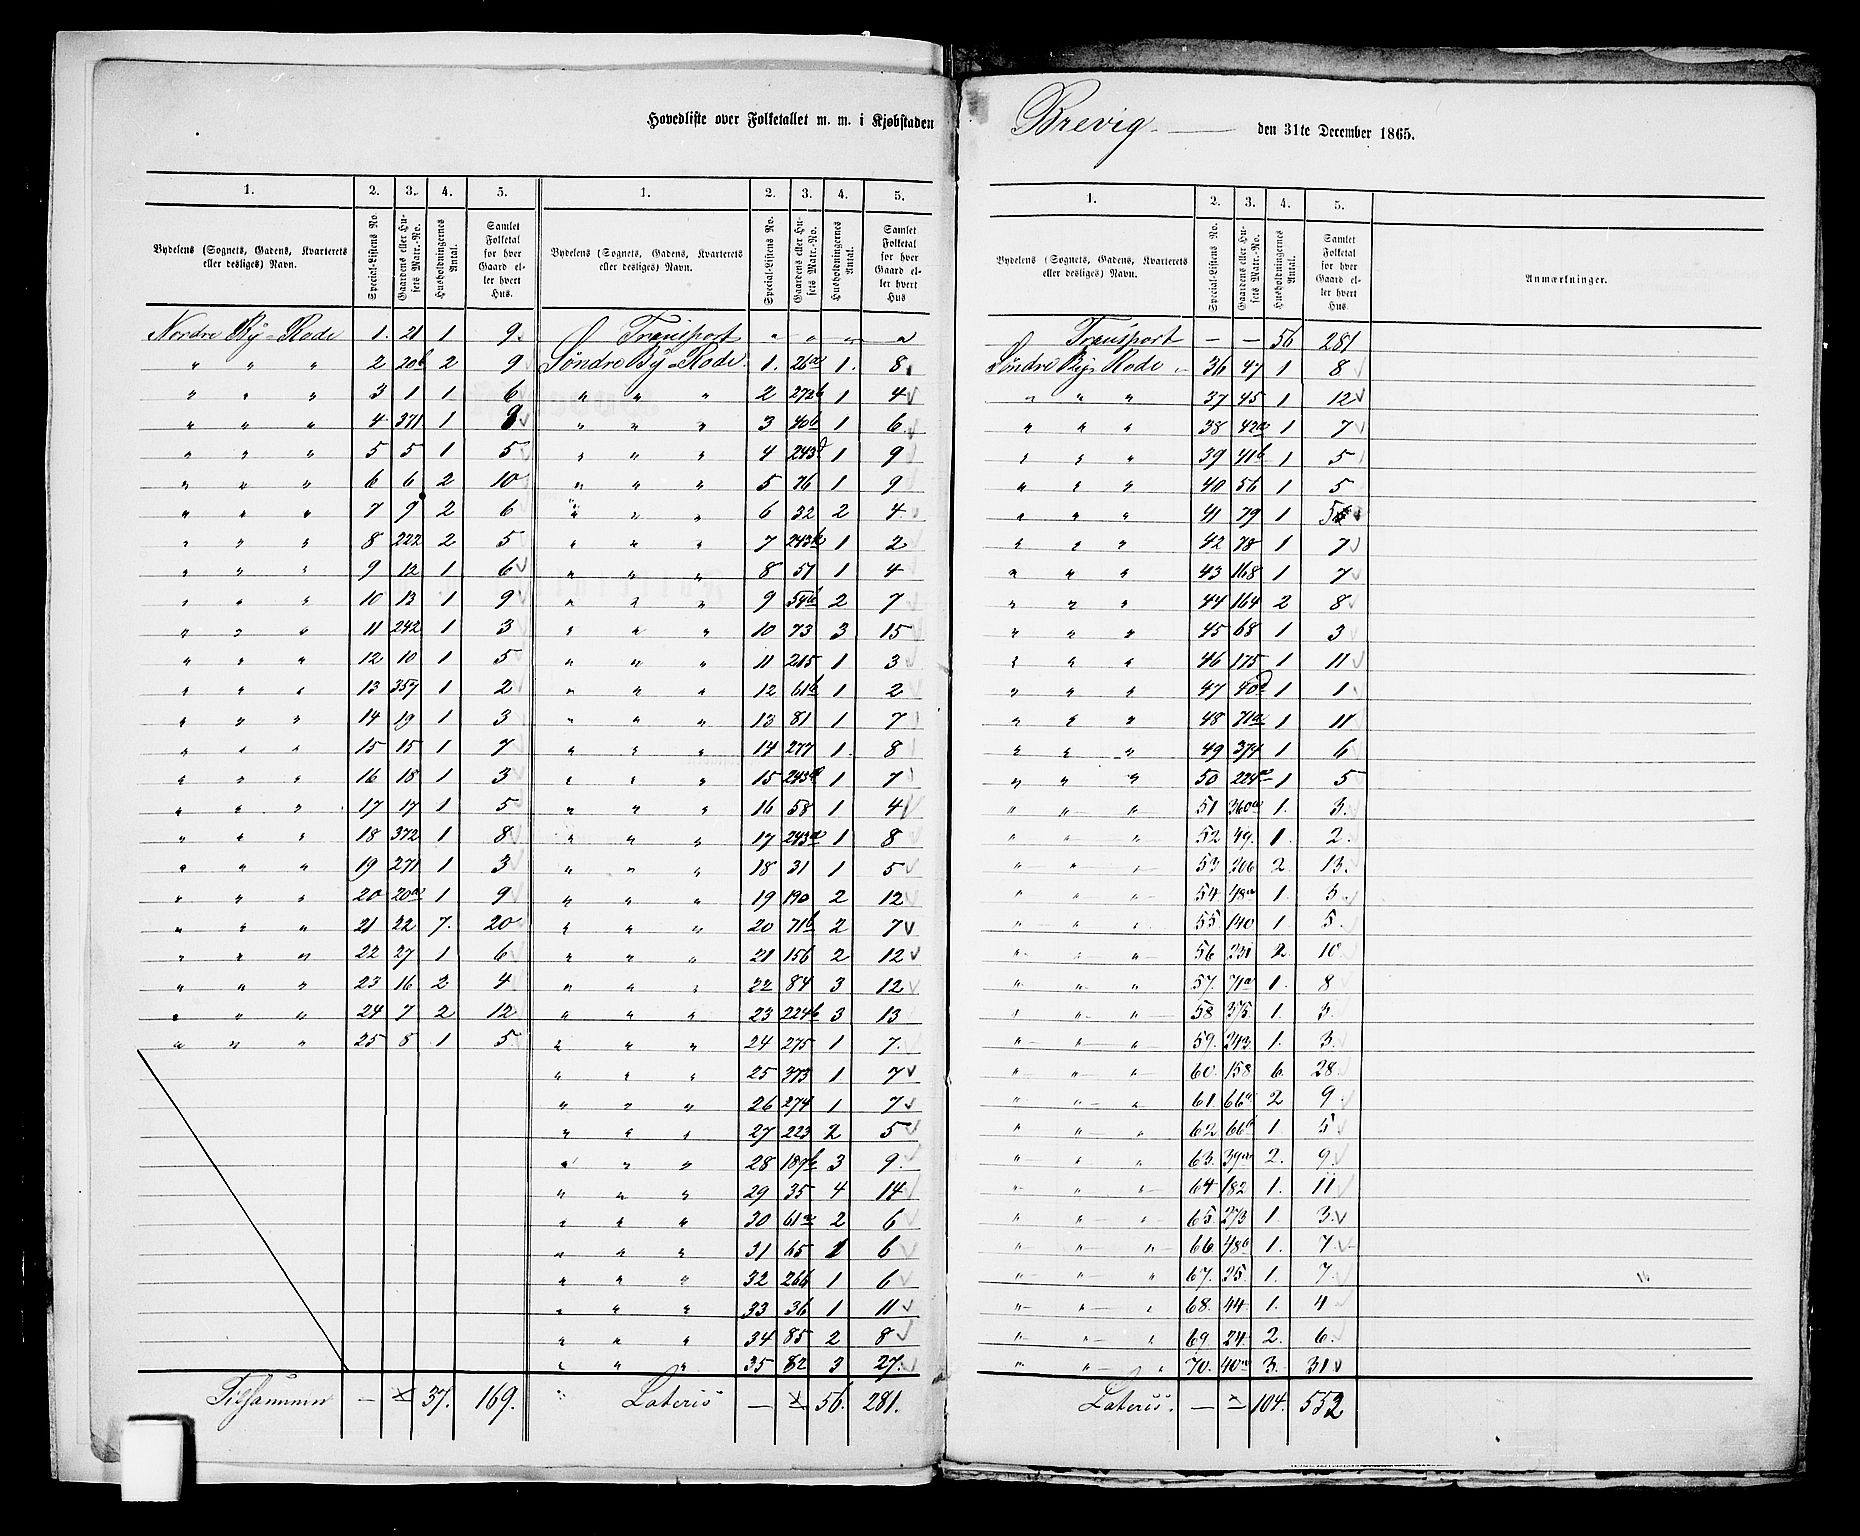 Hovedliste over Folketallet m. m. i Kjøbstaden Brevig den 31te December 1865.
1. 2. 3. 4. 5. 1. 2. 3. 4. 5.
Bydelens (Sognets, Gadens, Kvarterets eller desliges) Navn. Special-Listens No. Gaardens eller Husets Matr.-No. Husholdningernes Antal. Samlet Folketal for hver Gaard eller hvert Hus.
Nordre By-Rode 1. 21 1 9
" " " 2 20b 2 9
" " " 3 1 1 6
" " " 4 371 1 9
" " " 5 5 1 5
" " " 6 6 2 10
" " " 7 9 2 6
" " " 8 222 2 5
" " " 9 12 1 6
" " " 10 13 1 9
" " " 11 242 1 3
" " " 12 10 1 5
" " " 13 357 1 2
" " " 14 19 1 3
" " " 15 15 1 7
" " " 16 18 1 3
" " " 17 17 1 5
" " " 18 372 1 8
" " " 19 271 1 3
" " " 20 20a 1 9
" " " 21 22 7. 20
" " " 22 27 1 6
" " " 23 16 2 4
" " " 24 7 2 12
" " " 25 8 1 5
Tilsammen — 37. 169.
Bydelens (Sognets, Gadens, Kvarterets eller desliges) Navn. Special-Listens No. Gaardens eller Husets Matr.-No. Husholdningernes Antal. Samlet Folketal for hver Gaard eller hvert Hus
Transport " " " "
Søndre By-Rode. 1. 26a 1. 8
" " " 2 272b 1 4
" " " 3 40b 1 6
" " " 4 243d 1 9
" " " 5 76 1 9
" " " 6 32 2 4
" " " 7 243b 1 2
" " " 8 51 1 4
" " " 9 54b 2 7
" " " 10 73 3 15
" " " 11 215 1 3
" " " 12 61b 1 2
" " " 13 81 1 7
" " " 14 277 1. 8
" " " 15 243 1 7
" " " 16 58 1 4
" " " 17 243a 1 8
" " " 18 31 1 5
" " " 19 190 2 12
" " " 20 71b 2 7
" " " 21 156 2 12
" " " 22 84 3 12
" " " 23 224b 3 13
" " " 24 275 1 7.
" " " 25 373 1 7
" " " 26 274 1 7
" " " 27 223 2 5
" " " 28 189b 3 9.
" " " 29 35 4 14
" " " 30 61a 2 6
" " " 31 65 1 6
" " " 32 266 1 6
" " " 33 36 1 11
" " " 34 85 2 8
" " " 35 82 3 27.
" Lateris — 56. 281.
1. 2. 3. 4. 5.
Bydelens (Sognets, Gadens, Kvarterets eller desliges) Navn. Special-Listens No. Gaardens eller Husets Matr.-No. Husholdningernes Antal. Samlet Folketal for hver Gaard eller hvert Hus. Anmærkninger.
Transport — — 56 281
Søndre By-Rode 36 47 1 8
" " " 37 45 1 12
" " " 38 42a 1 7
" " " 39 41b 1 5
" " " 40 56 1 5
" " " 41 79 1 5
" " " 42 78 1 7
" " " 43 168 1 7
" " " 44 164 2 8
" " " 45 68 1 3
" " " 46 175 1 11
" " " 47 40d 1 1
" " " 48 71a 1 11
" " " 49 374 1 6
" " " 50 224a 1 5
" " " 51 360a 1. 3.
" " " 52 49. 1. 2.
" " " 53 206 2. 13.
" " " 54. 48a 1. 3.
" " " 55. 140 1. 5.
" " " 56 231 2. 10
" " " 57. 71a 1. 8
" " " 58 375. 1. 3.
" " " 59. 243. 1. 3.
" " " 60. 158 6. 28
" " " 61. 66a 2 9
" " " 62 66b 1. 5
" " " 63. 39a 2. 9.
" " " 64 182 1. 11
" " " 65. 273 1. 3.
" " " 66. 48b 1. 7.
" " " 67. 25. 1. 7.
" " " 68. 44. 1. 4
" " " 69. 24. 2. 6.
" " " 70. 40 3. 31
Lateris. — 104. 552